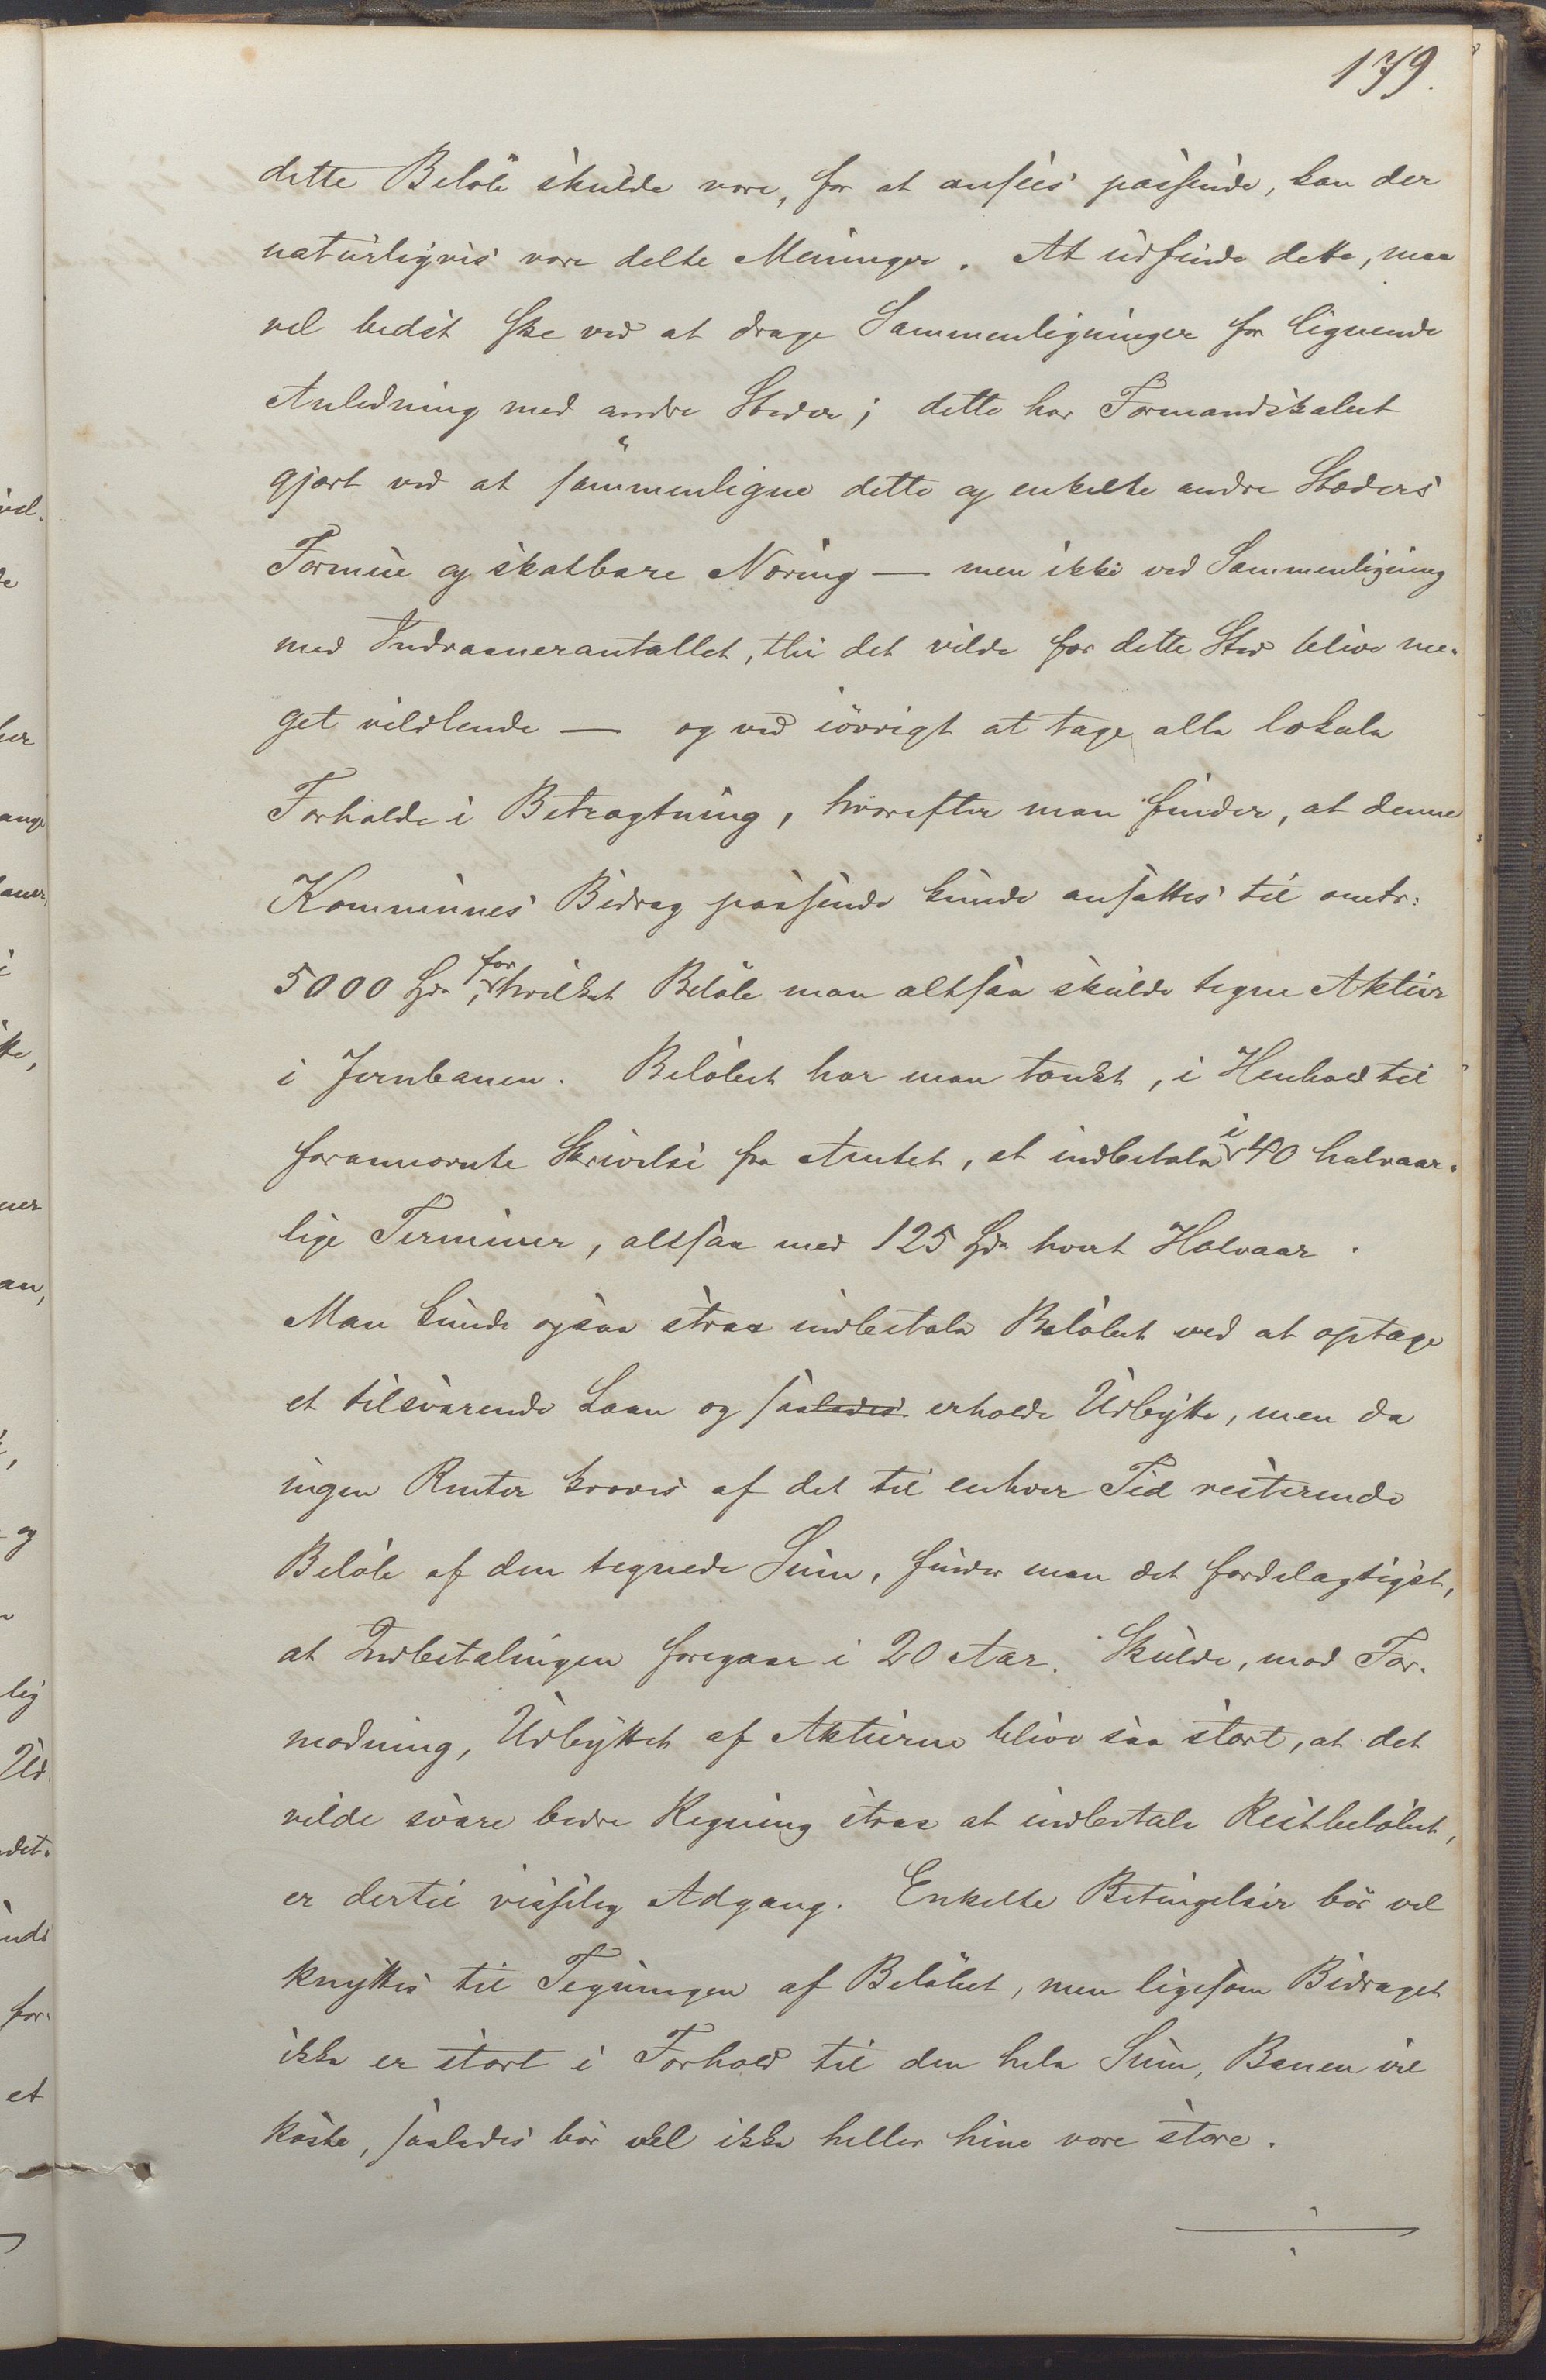 179.
dette Beløb skulde være, for at ansees passende, kan der
naturligvis være delte Meninger. At udfinde dette, maa
vel bedst ske ved at drage Sammenligninger for lignende
Anledning med andre Steder; dette har Formandskabet
gjort ved at sammenligne dette og enkelte andre Stæders
Formue og skatbare Næring — men ikke ved Sammenligning
med Indvaanerantallet, thi det vilde for dette Sted blive me-
get vildlende — og ved iøvrigt at tage alle lokale
Forholde i Betragtning, hvorefter man finder, at denne
Kommunes Bidrag passende kunde ansættes til omtr:
5000 Spd, for hvilket Beløb man altsaa skulde tegne Aktier
i Jernbanen. Beløbet har man tænkt, i Henhold til
forannævnte Skrivelse fra Amtet, at indbetale i 40 halvaar-
lige Terminer, altsaa med 125 Spd hvert Halvaar.
Man kunde ogsaa strax indbetale Beløbet ved at optage
et tilsvarende Laan og saaledes erholde Udbytte, men da
ingen Renter kræves af det til enhver Tid resterende
Beløb af den tegnede Sum, finder man det fordelagtigst,
at Indbetalingen foregaar i 20 Aar. Skulde, mod For-
modning, Udbyttet af Aktierne blive saa stort, at det
vilde svare bedre Regning strax at indbetale Restbeløbet,
er dertil visselig Adgang. Enkelte Betingelser bør vel
knyttes til Tegningen af Beløbet, men ligesom Bidraget
ikke er stort i Forhold til den hele Sum, Banen vil
koste, saaledes bør vel ikke heller hine være store.